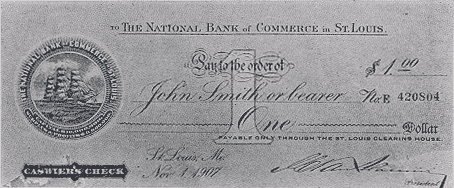 TO THE NATIONAL BANK OF COMMERCE IN ST. LOUIS.
Pay to the order of $1.00
John Smith or bearer No E 420804
One Dollar
PAYABLE ONLY THROUGH THE ST. LOUIS CLEARING HOUSE.
St. Louis, Mo.
Nov. 1 1907
CASHIER'S CHECK
President
THE NATIONAL BANK OF COMMERCE IN ST LOUIS
1